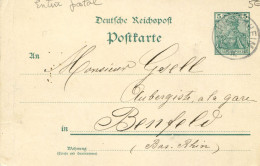 Entier postal
Deutsche Reichspost
Postkarte
5
An
Monsieur Gsell
Aubergiste, à la gare
in Benfeld
Wohnung
(Bas-Rhin)